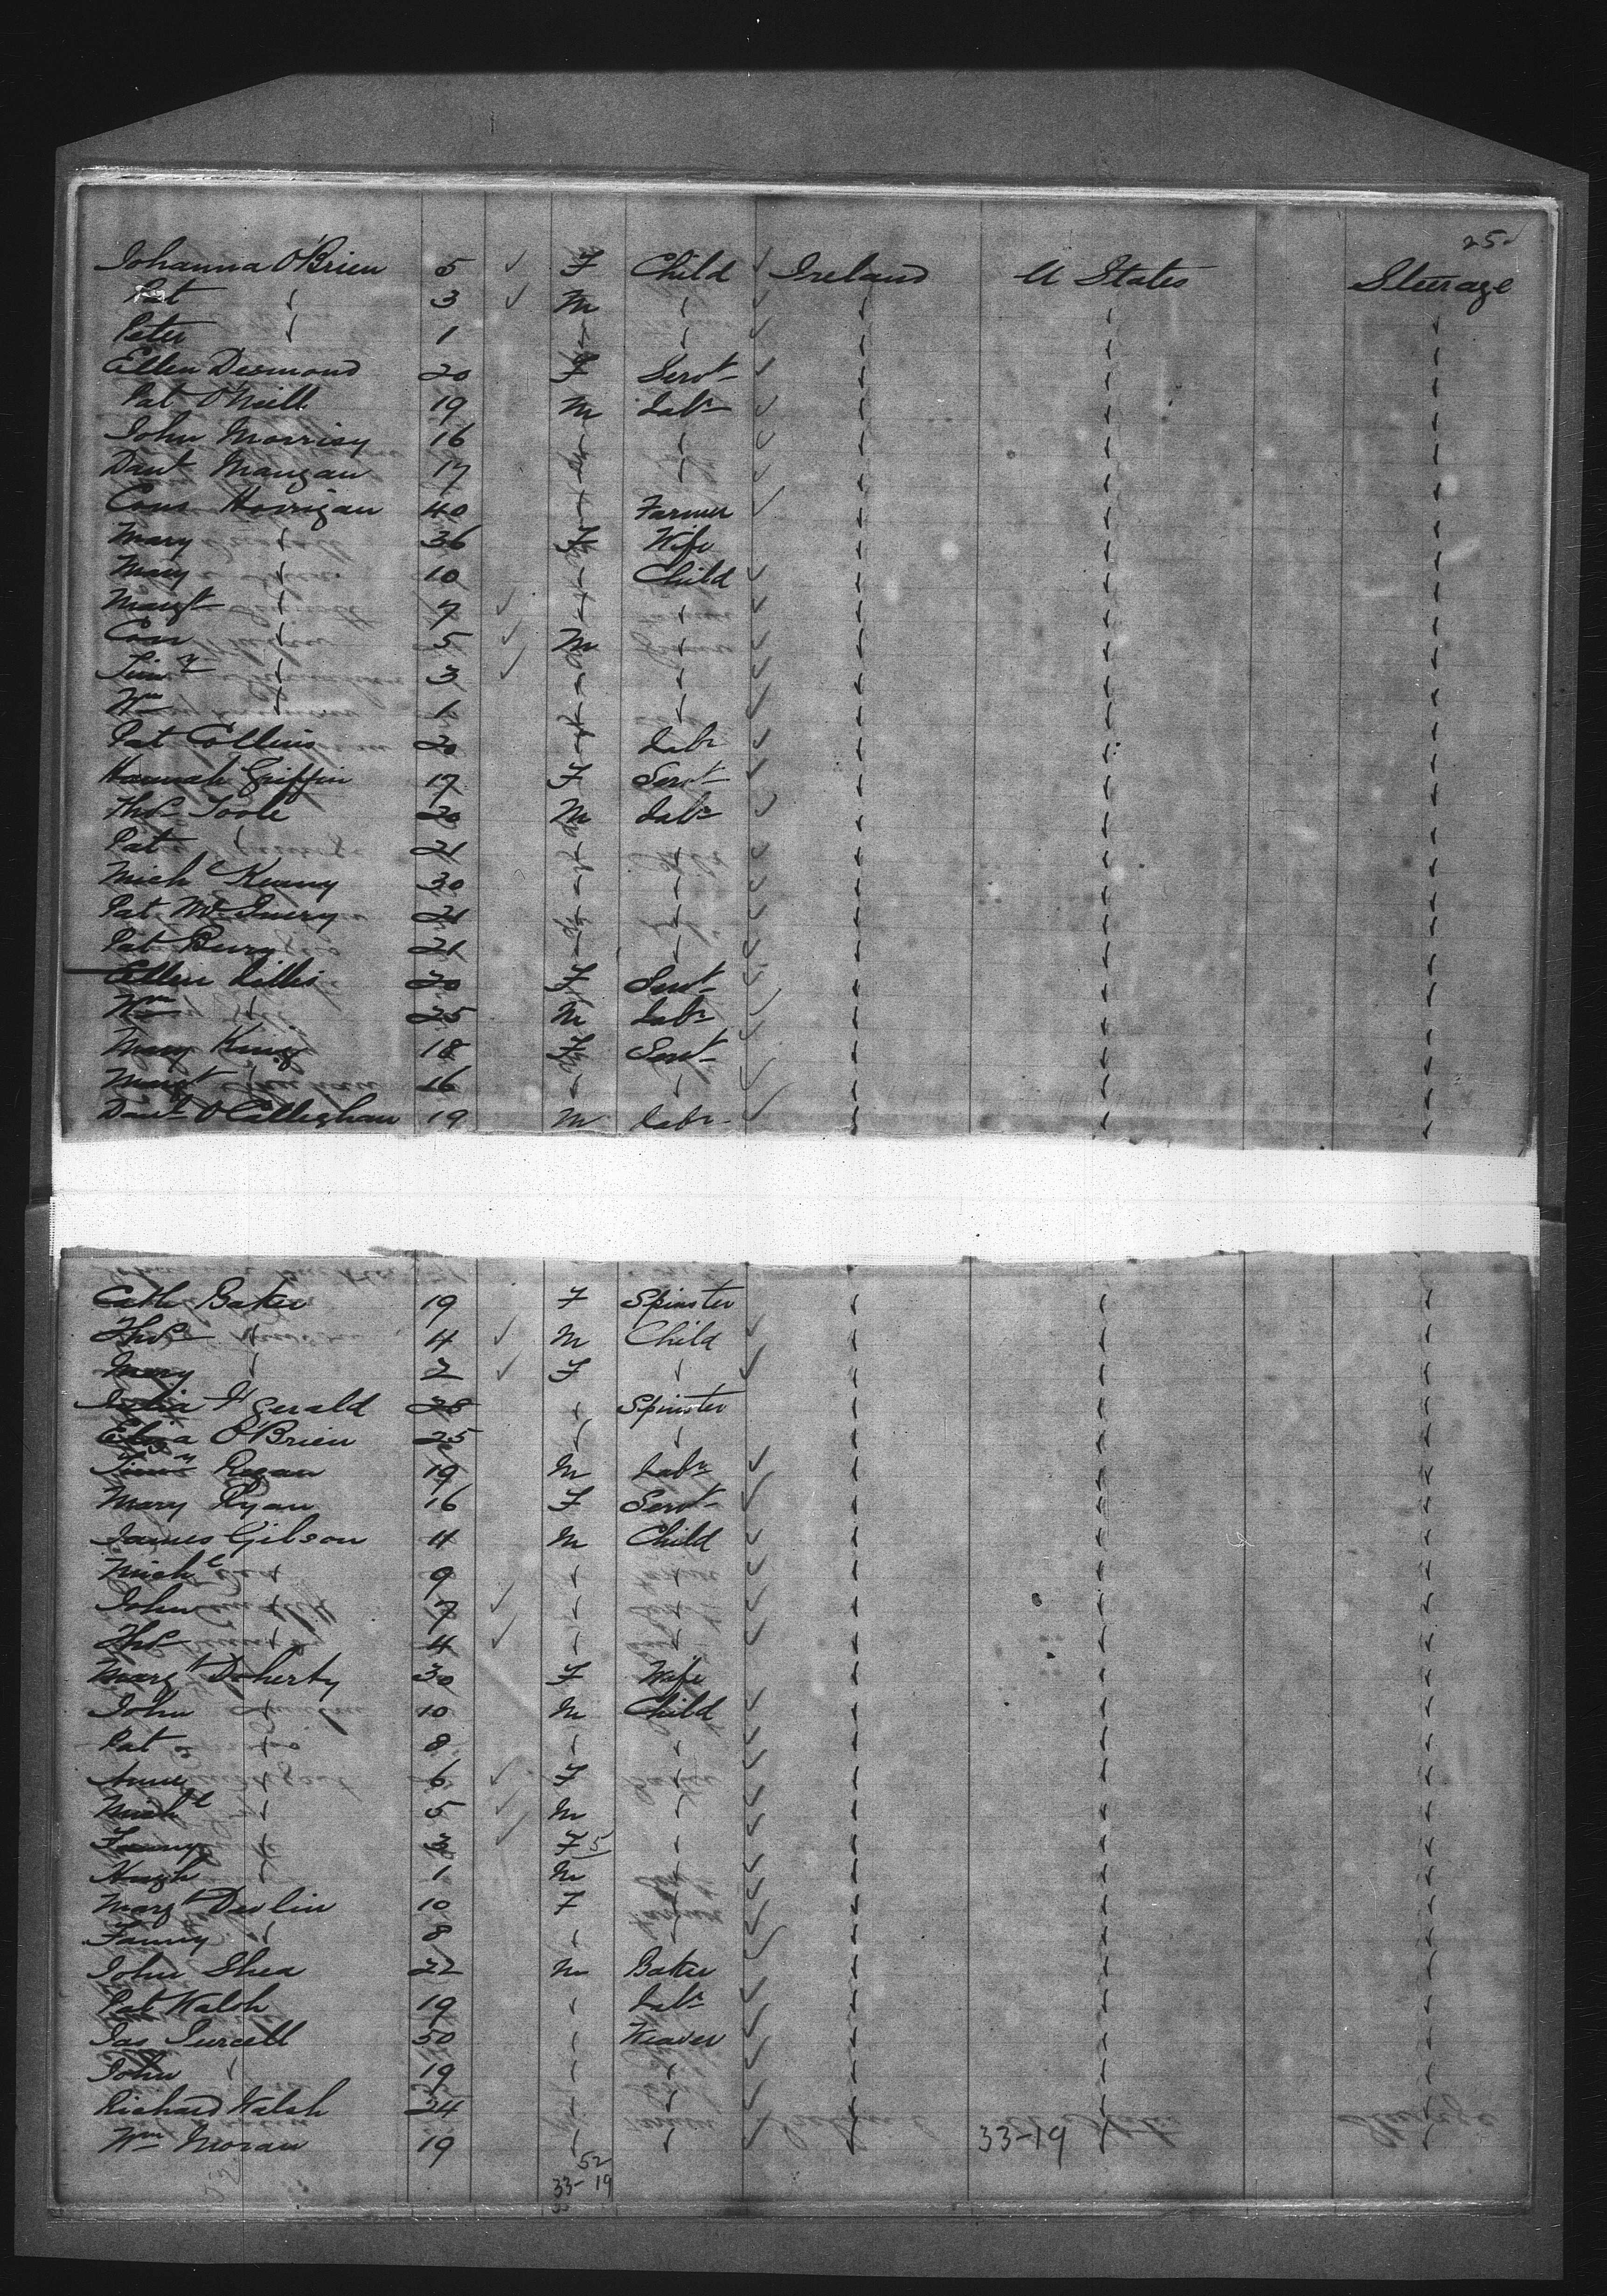 25
Johanna O'Brien 5 ✓ F Child ✓ Ireland U States Steerage
Pat " 3 ✓ M " ✓ " " "
Peter " 1 " " ✓ " " "
Ellen Desmond 20 F Servt ✓ " " "
Pat O'Neill 19 M Labr ✓ " " "
John Morrisy 16 " " ✓ " " "
Danl Mangan 17 " " ✓ " " "
Cons Horrigan 40 " Farmer ✓ " " "
Mary " 36 F Wife " " "
Mary " 10 " Child ✓ " " "
Margt " 7 ✓ " " ✓ " " "
Con " 5 ✓ M " ✓ " " "
Timy " 3 ✓ " " ✓ " " "
Wm " 1 " " ✓ " " "
Pat Collins 20 " Labr ✓ " " "
Hannah Griffin 17 F Servt ✓ " " "
Thos Toole 20 M Labr ✓ " " "
Pat " 21 " " ✓ " " "
Michl Keany 30 " " ✓ " " "
Pat 21 " " ✓ " " "
Pat Berry 21 " " ✓ " " "
Ellen Lillis 20 F Servt ✓ " " "
Wm " 25 M Labr ✓ " " "
Mary King 18 F Servt ✓ " " "
Margt " 16 " " ✓ " " "
Danl O'Calleghan 19 M Labr ✓ " " "
Cath Baker 19 F Spinster " " "
Thos " 4 ✓ M Child ✓ " " "
Mary " 2 ✓ F " ✓ " " "
Julia F Gerald 28 " Spinster " " "
Eliza O'Brien 25 " " " " "
Timy Regan 19 M Labr ✓ " " "
Mary Ryan 16 F Servt ✓ " " "
James Gibson 11 M Child ✓ " " "
Michl " 9 " " ✓ " " "
John " 7 ✓ " " ✓ " " "
Thos " 4 ✓ " " ✓ " " "
Margt Doherty 30 F Wife " " "
John " 10 M Child ✓ " " "
Pat " 8 " " ✓ " " "
Anne " 6 ✓ F " ✓ " " "
Michl " 5 ✓ M " ✓ " " "
Fanny " 3 ✓ F 5 " ✓ " " "
Hugh " 1 M " ✓ " " "
Margt Devlin 10 F " ✓ " " "
Fanny " 8 " " ✓ " " "
John Shea 22 M Baker ✓ " " "
Pat Walsh 19 " Labr ✓ " " "
Jas Purcell 50 " Weaver ✓ " " "
John " 19 " " ✓ " " "
Richard Walsh 24 " " ✓ " " "
Wm Moran 19 " " ✓ " 33-19 " "
52
33-19